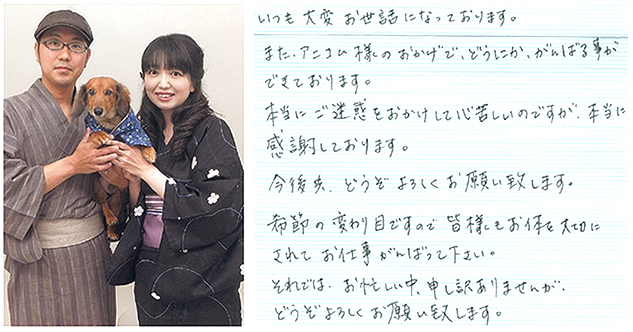 いつも大変お世話になっております。
また、アニコム様のおかげで、どうにか、がんばる事が
できております。
本当にご迷惑をおかけして心苦しいのですが、本当に
感謝しております。
今後共、どうぞよろしくお願い致します。
季節の変わり目ですので皆様もお体を大切に
されてお仕事がんばって下さい。
それでは、お忙しい中、申し訳ありませんが、
どうぞよろしくお願い致します。